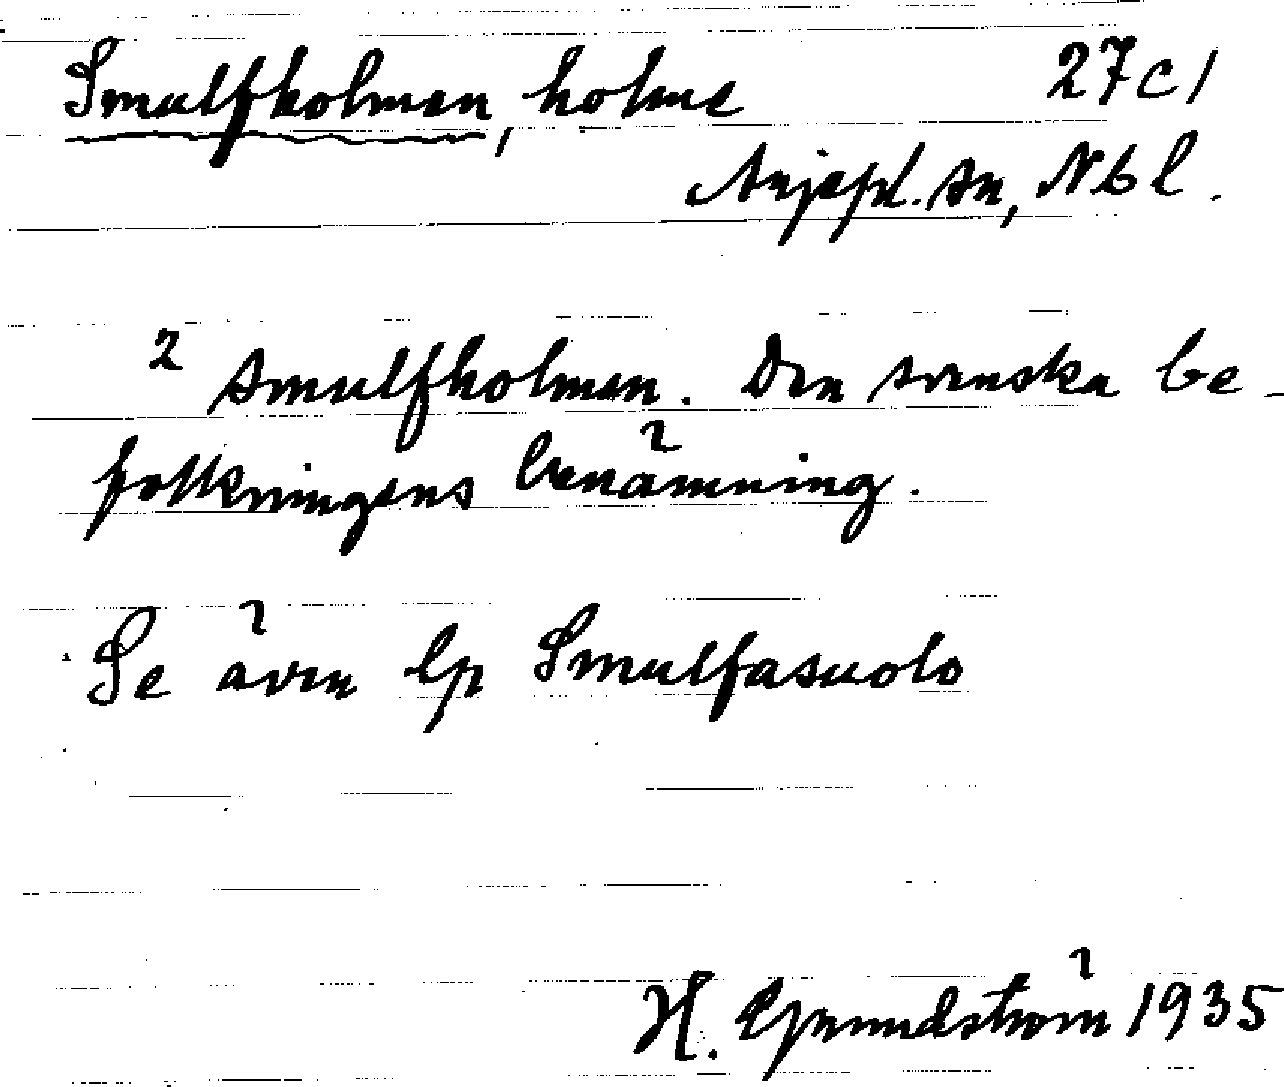 Smulfholmen, holme 27 c 1
Arjepl. sn, Nbl.
2 smulfholmen. Den svenska be-
folkningens benämning.
Se även lp Smulfasuolo
H. Grundström 1935